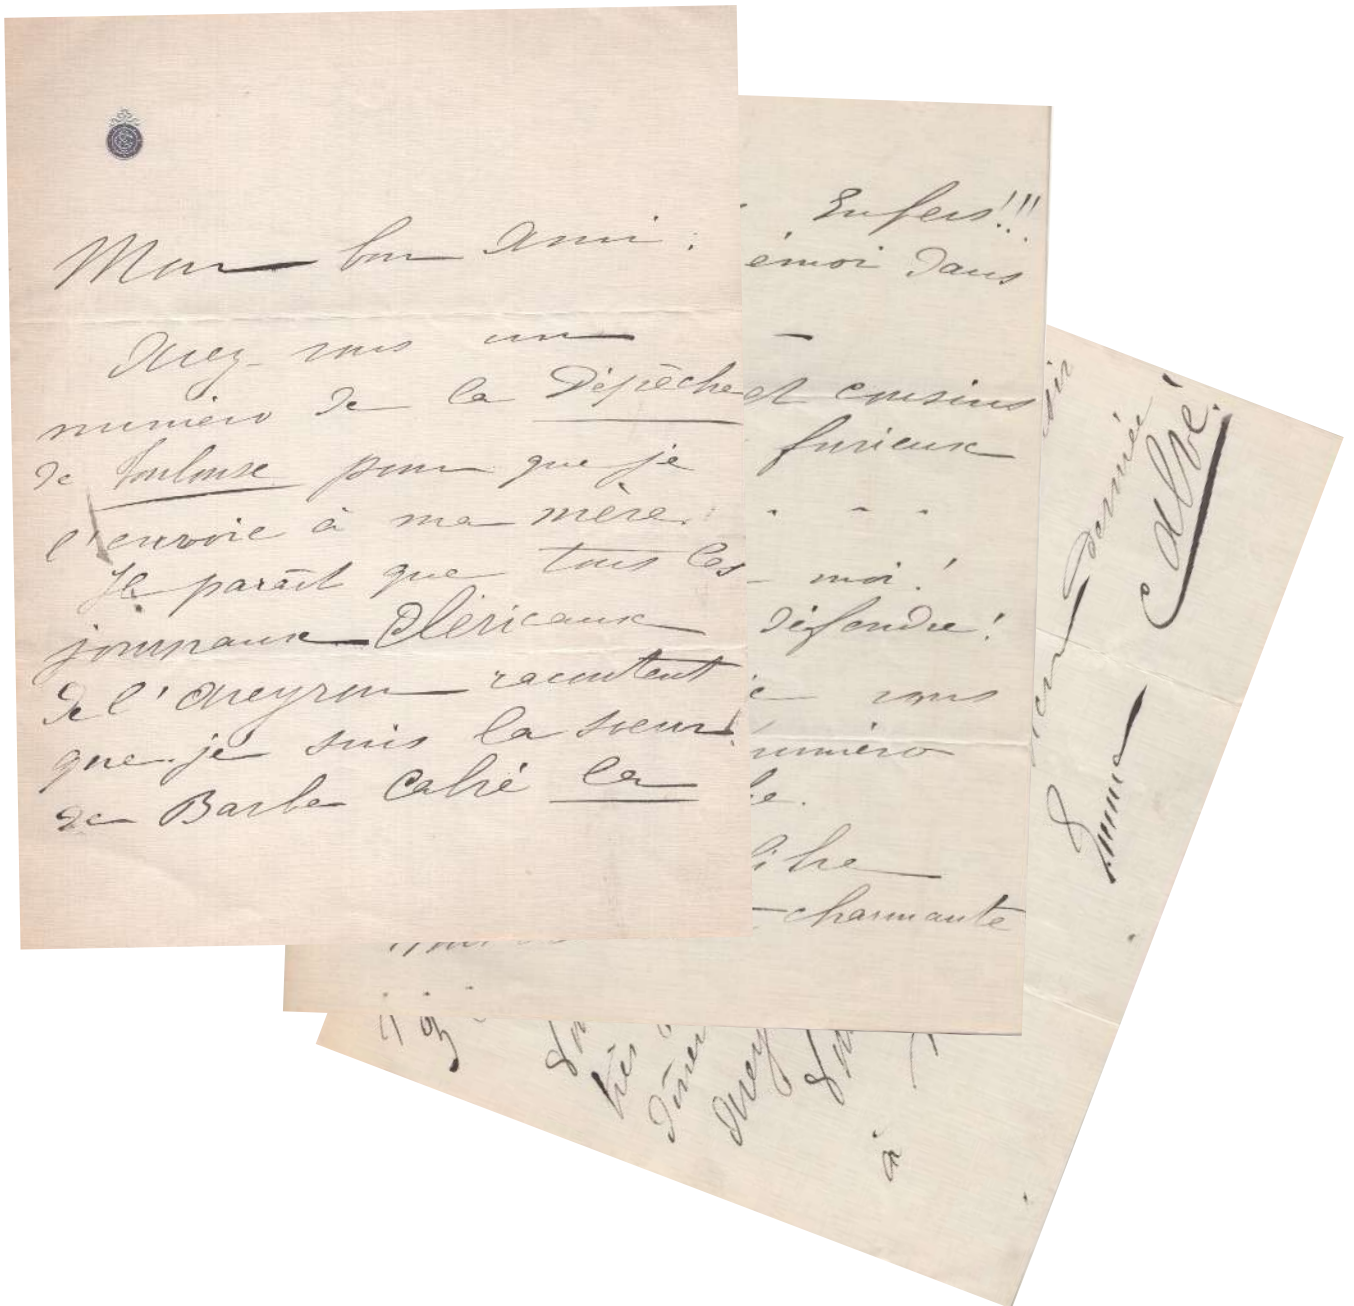 Mon bon Ami :
Avez-vous un
numéro de la Dépêche
de Toulouse pour que je
l'envoie à ma mère.
Il paraît que tous les
journaux Cléricaux
de l'Aveyron racontent
que je suis la soeur
de Barbe Calvé la
Enfers!!!
émoi dans
et cousins
furieux
moi!
défendre!
vous
numéro
charmante
dernière
Emma Calvé!
très
dîner
à